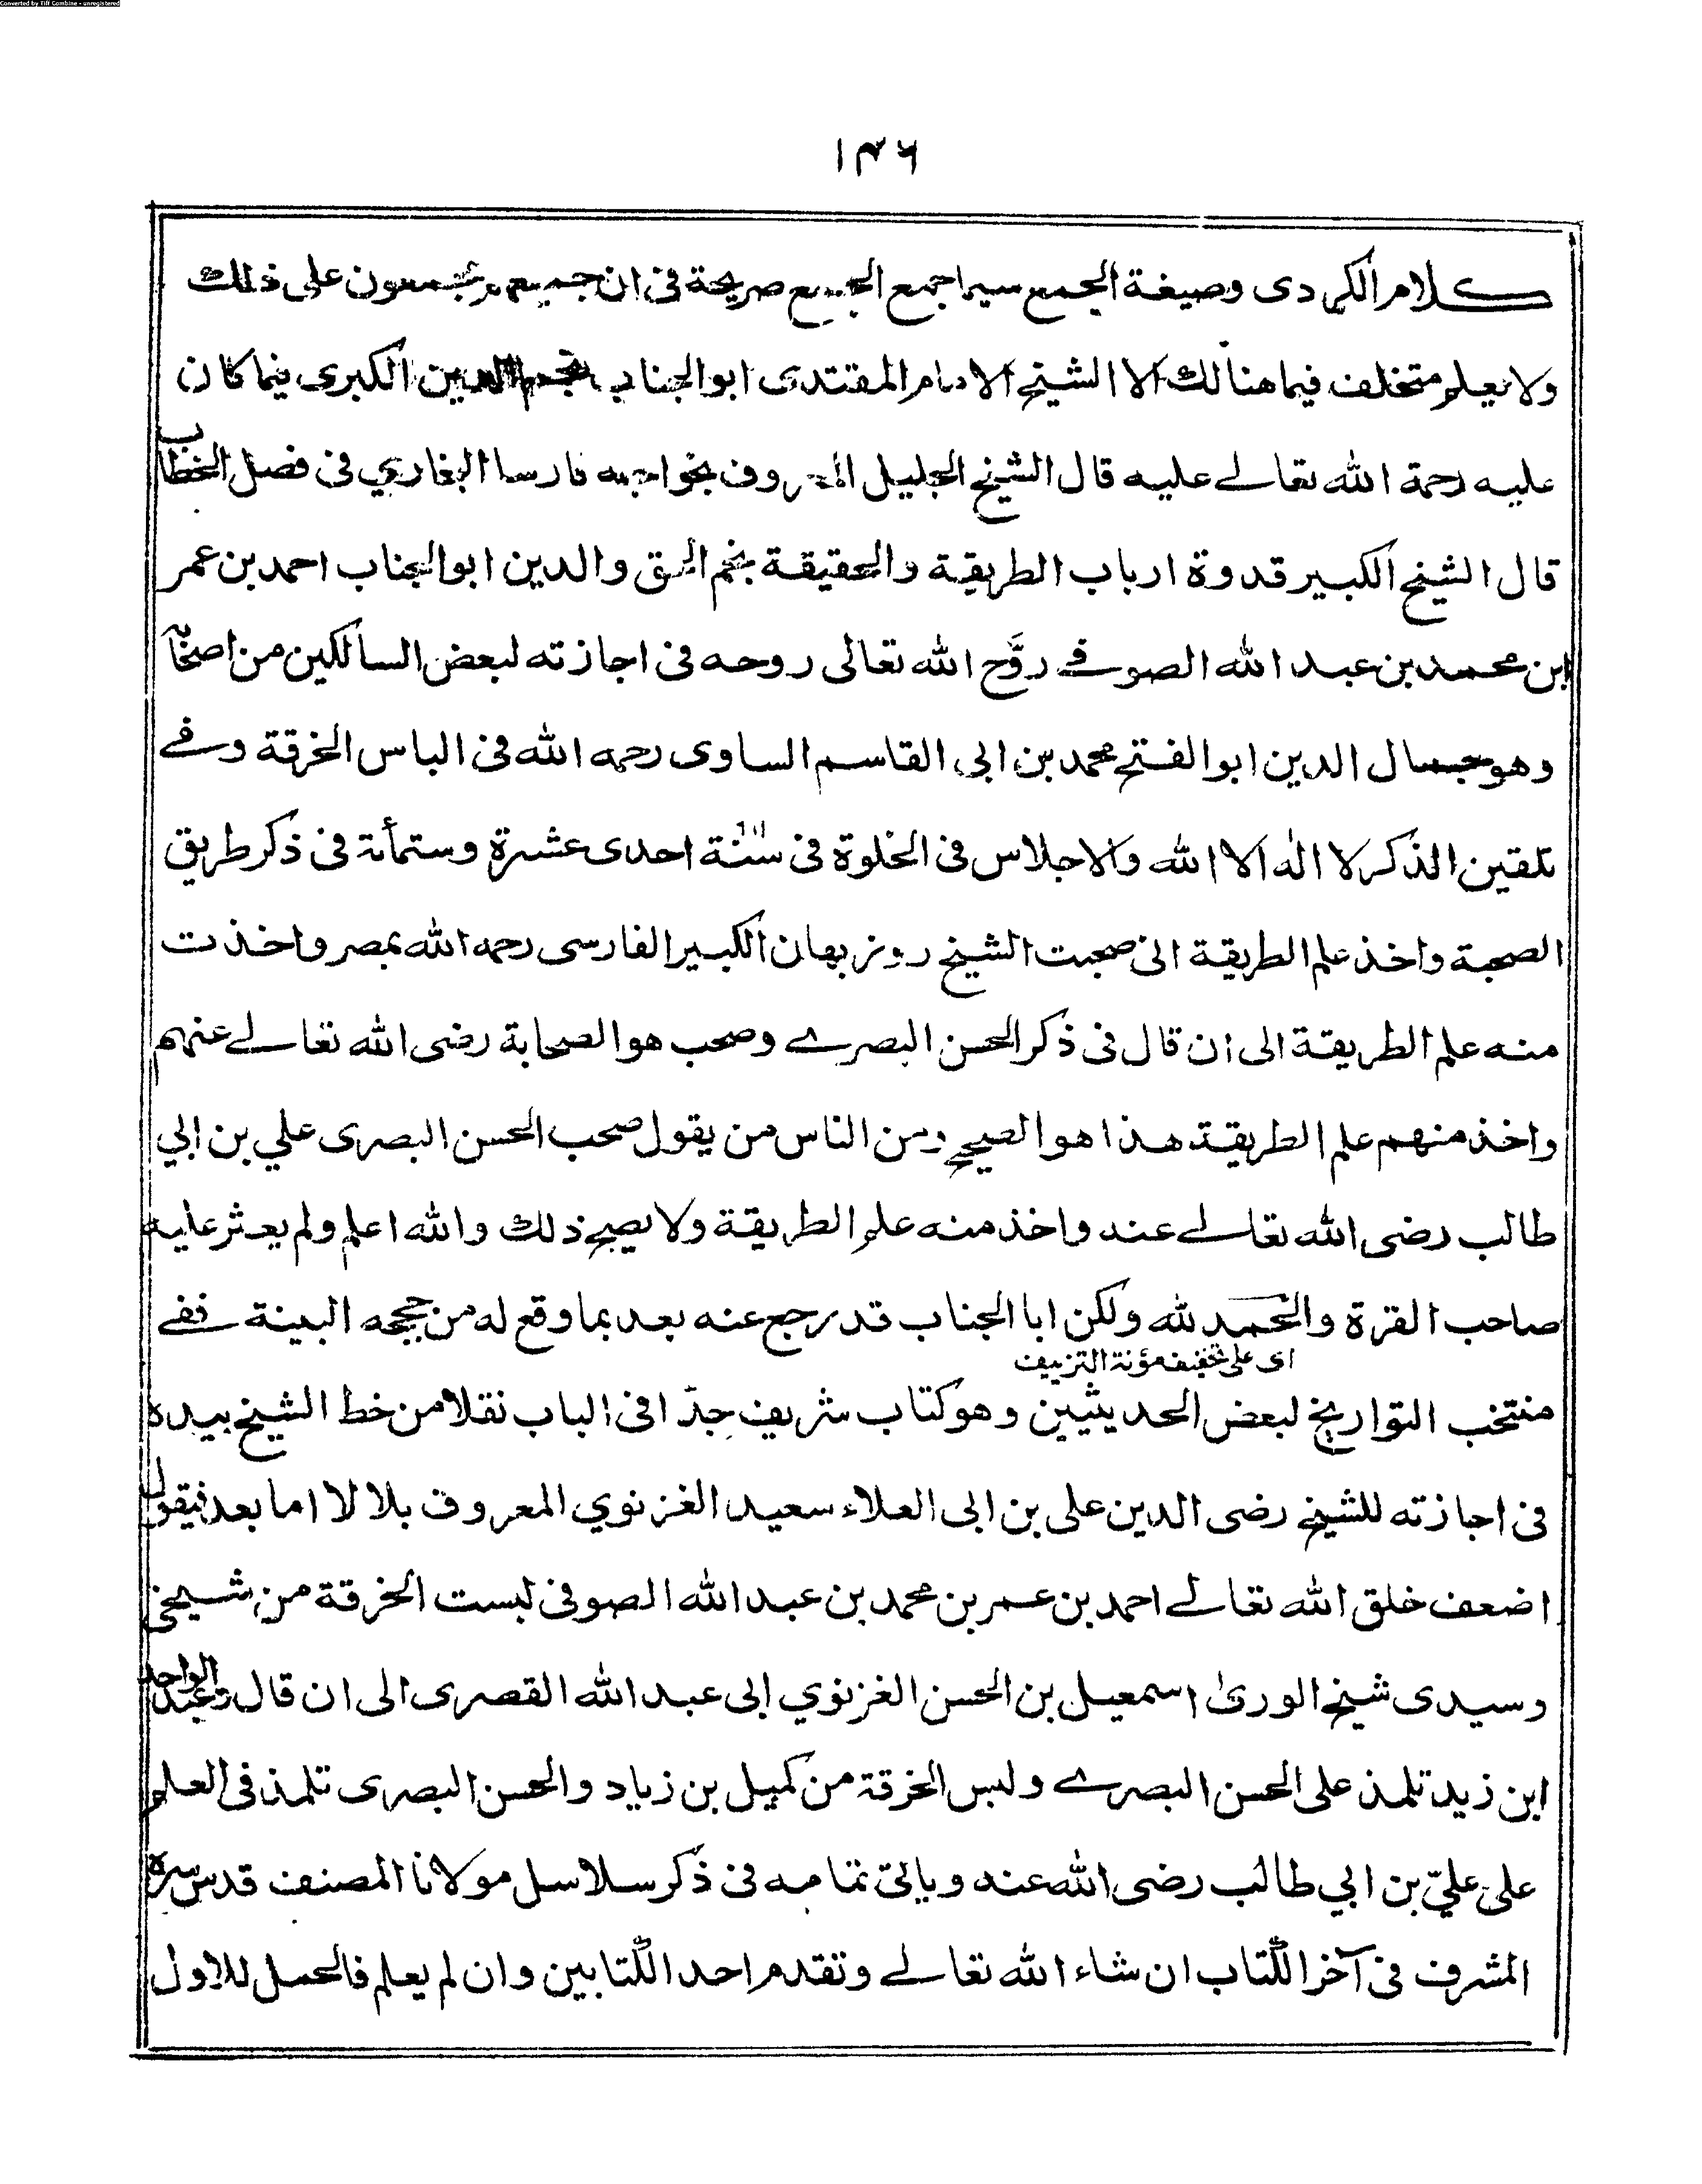 Converted by Tiff Combine - unregistered
١٣٦
كلام الكردى وصيغة الجمع سيما جمع الجميع صريحة فى ان جميعهم مجمعون على ذلك
ولا يعلم متخلف فيما هنالك الا الشيخ الامام المقتدى ابو الجناب نجم الدين الكبرى فيما كان
عليه رحمة الله تعالے عليه قال الشيخ الجليل المعروف بخواجه پارسا البخاري فى فصل الخطاب
قال الشيخ الكبير قدوة ارباب الطريقة والحقيقة نجم الحق والدين ابو الجناب احمد بن عمر
ابن محمد بن عبد الله الصوفے روَّح الله تعالى روحه فى اجازته لبعض السالكين من اصحابه
وهو جمال الدين ابو الفتح محمد بن ابى القاسم الساوى رحمه الله فى الباس الخرقة وفے
تلقين الذكر لا اله الا الله والاجلاس فى الخلوة فى سنة ٦١١ احدى عشرة وستمأة فى ذكر طريق
الصحبة واخذ علم الطريقة انى صحبت الشيخ روزبهان الكبير الفارسى رحمه الله بمصر واخذت
منه علم الطريقة الى ان قال فى ذكر الحسن البصرے وصحب هو الصحابة رضى الله تعالے عنهم
واخذ منهم علم الطريقة هذا هو الصحيح ومن الناس من يقول صحب الحسن البصرى علي بن ابي
طالب رضى الله تعالے عنه واخذ منه علم الطريقة ولا يصح ذلك والله اعلم ولم يعثر عليه
صاحب القرة والحمد لله ولكن ابا الجناب قد رجع عنه بعد بما وقع له من حججه البينة ففے
اى على تخفيف مؤنة التزييف
منتخب التواريخ لبعض الحديثيين وهو كتاب شريف جدّا فى الباب نقلا من خط الشيخ بيده
فى اجازته للشيخ رضى الدين على بن ابى العلاء سعيد الغزنوي المعروف بلالا اما بعد فيقول
اضعف خلق الله تعالے احمد بن عمر بن محمد بن عبد الله الصوفى لبست الخرقة من شيخى
وسيدى شيخ الورىٰ اسمعيل بن الحسن الغزنوي ابى عبد الله القصرى الى ان قال وعبد الواحد
ابن زيد تلمذ على الحسن البصرے ولبس الخرقة من كميل بن زياد والحسن البصرى تلمذ فى العلم
على عليّ بن ابي طالب رضى الله عنه وياتى تمامه فى ذكر سلاسل مولانا المصنف قدس سره
المشرف فى آخر الكتاب ان شاء الله تعالے وتقدم احد الكتابين وان لم يعلم فالحمل للاول